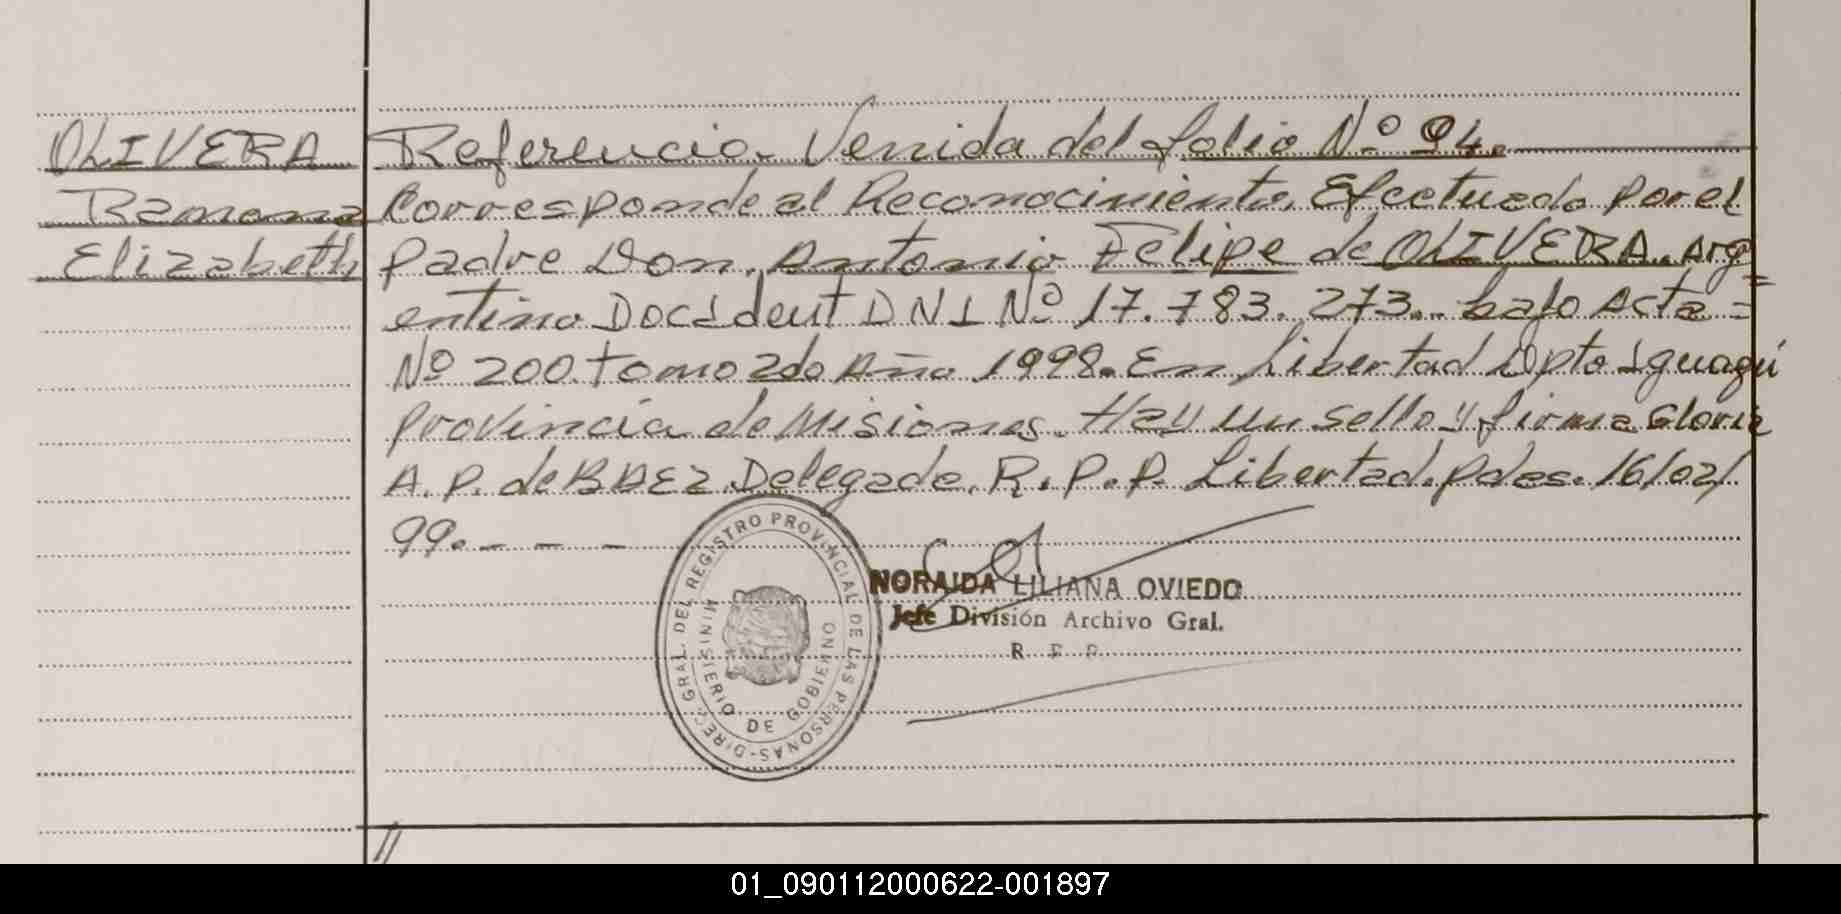 OLIVERA
Ramona
Elizabeth
Referencia. Venida del folio Nº 94.
Corresponde al Reconocimiento, Efectuado por el
padre Don, Antonio Felipe de OLIVERA. Arg
entino Doc Ident DNI Nº 17.783.273.. bajo Acta =
Nº 200. tomo 2do Año 1998. En Libertad Dpto Iguazú
provincia de Misiones. Hay un sello y firma Gloria
A. P. de BAEZ Delegada. R. P. P. Libertad. pdas. 16/02/
99. - - -
DIREC. GRAL. DEL REGISTRO PROVINCIAL DE LAS PERSONAS-
MINISTERIO DE GOBIERNO
NORAIDA LILIANA OVIEDO
Jefe División Archivo Gral.
R P P
01_090112000622-001897